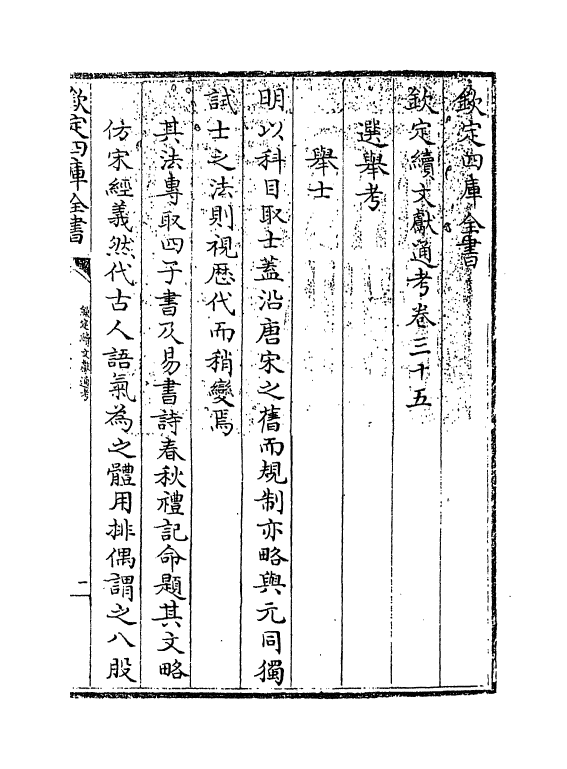 欽定四庫全書
欽定續文獻通考卷三十五
選舉考
舉士
明以科目取士蓋沿唐宋之舊而規制亦略與元同獨
試士之法則視歷代而稍變焉
其法專取四子書及易書詩春秋禮記命題其文略
仿宋經義然代古人語氣為之體用排偶謂之八股
欽定四庫全書
欽定續文獻通考
二